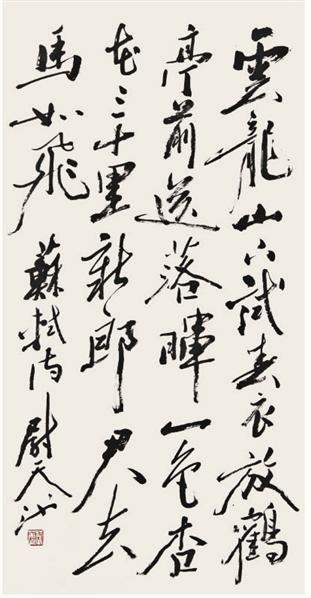 雲龍山下試春衣放鶴
亭前送落暉一色杏
花三十里新郎君去
馬如飛 蘇軾詩 尉天池